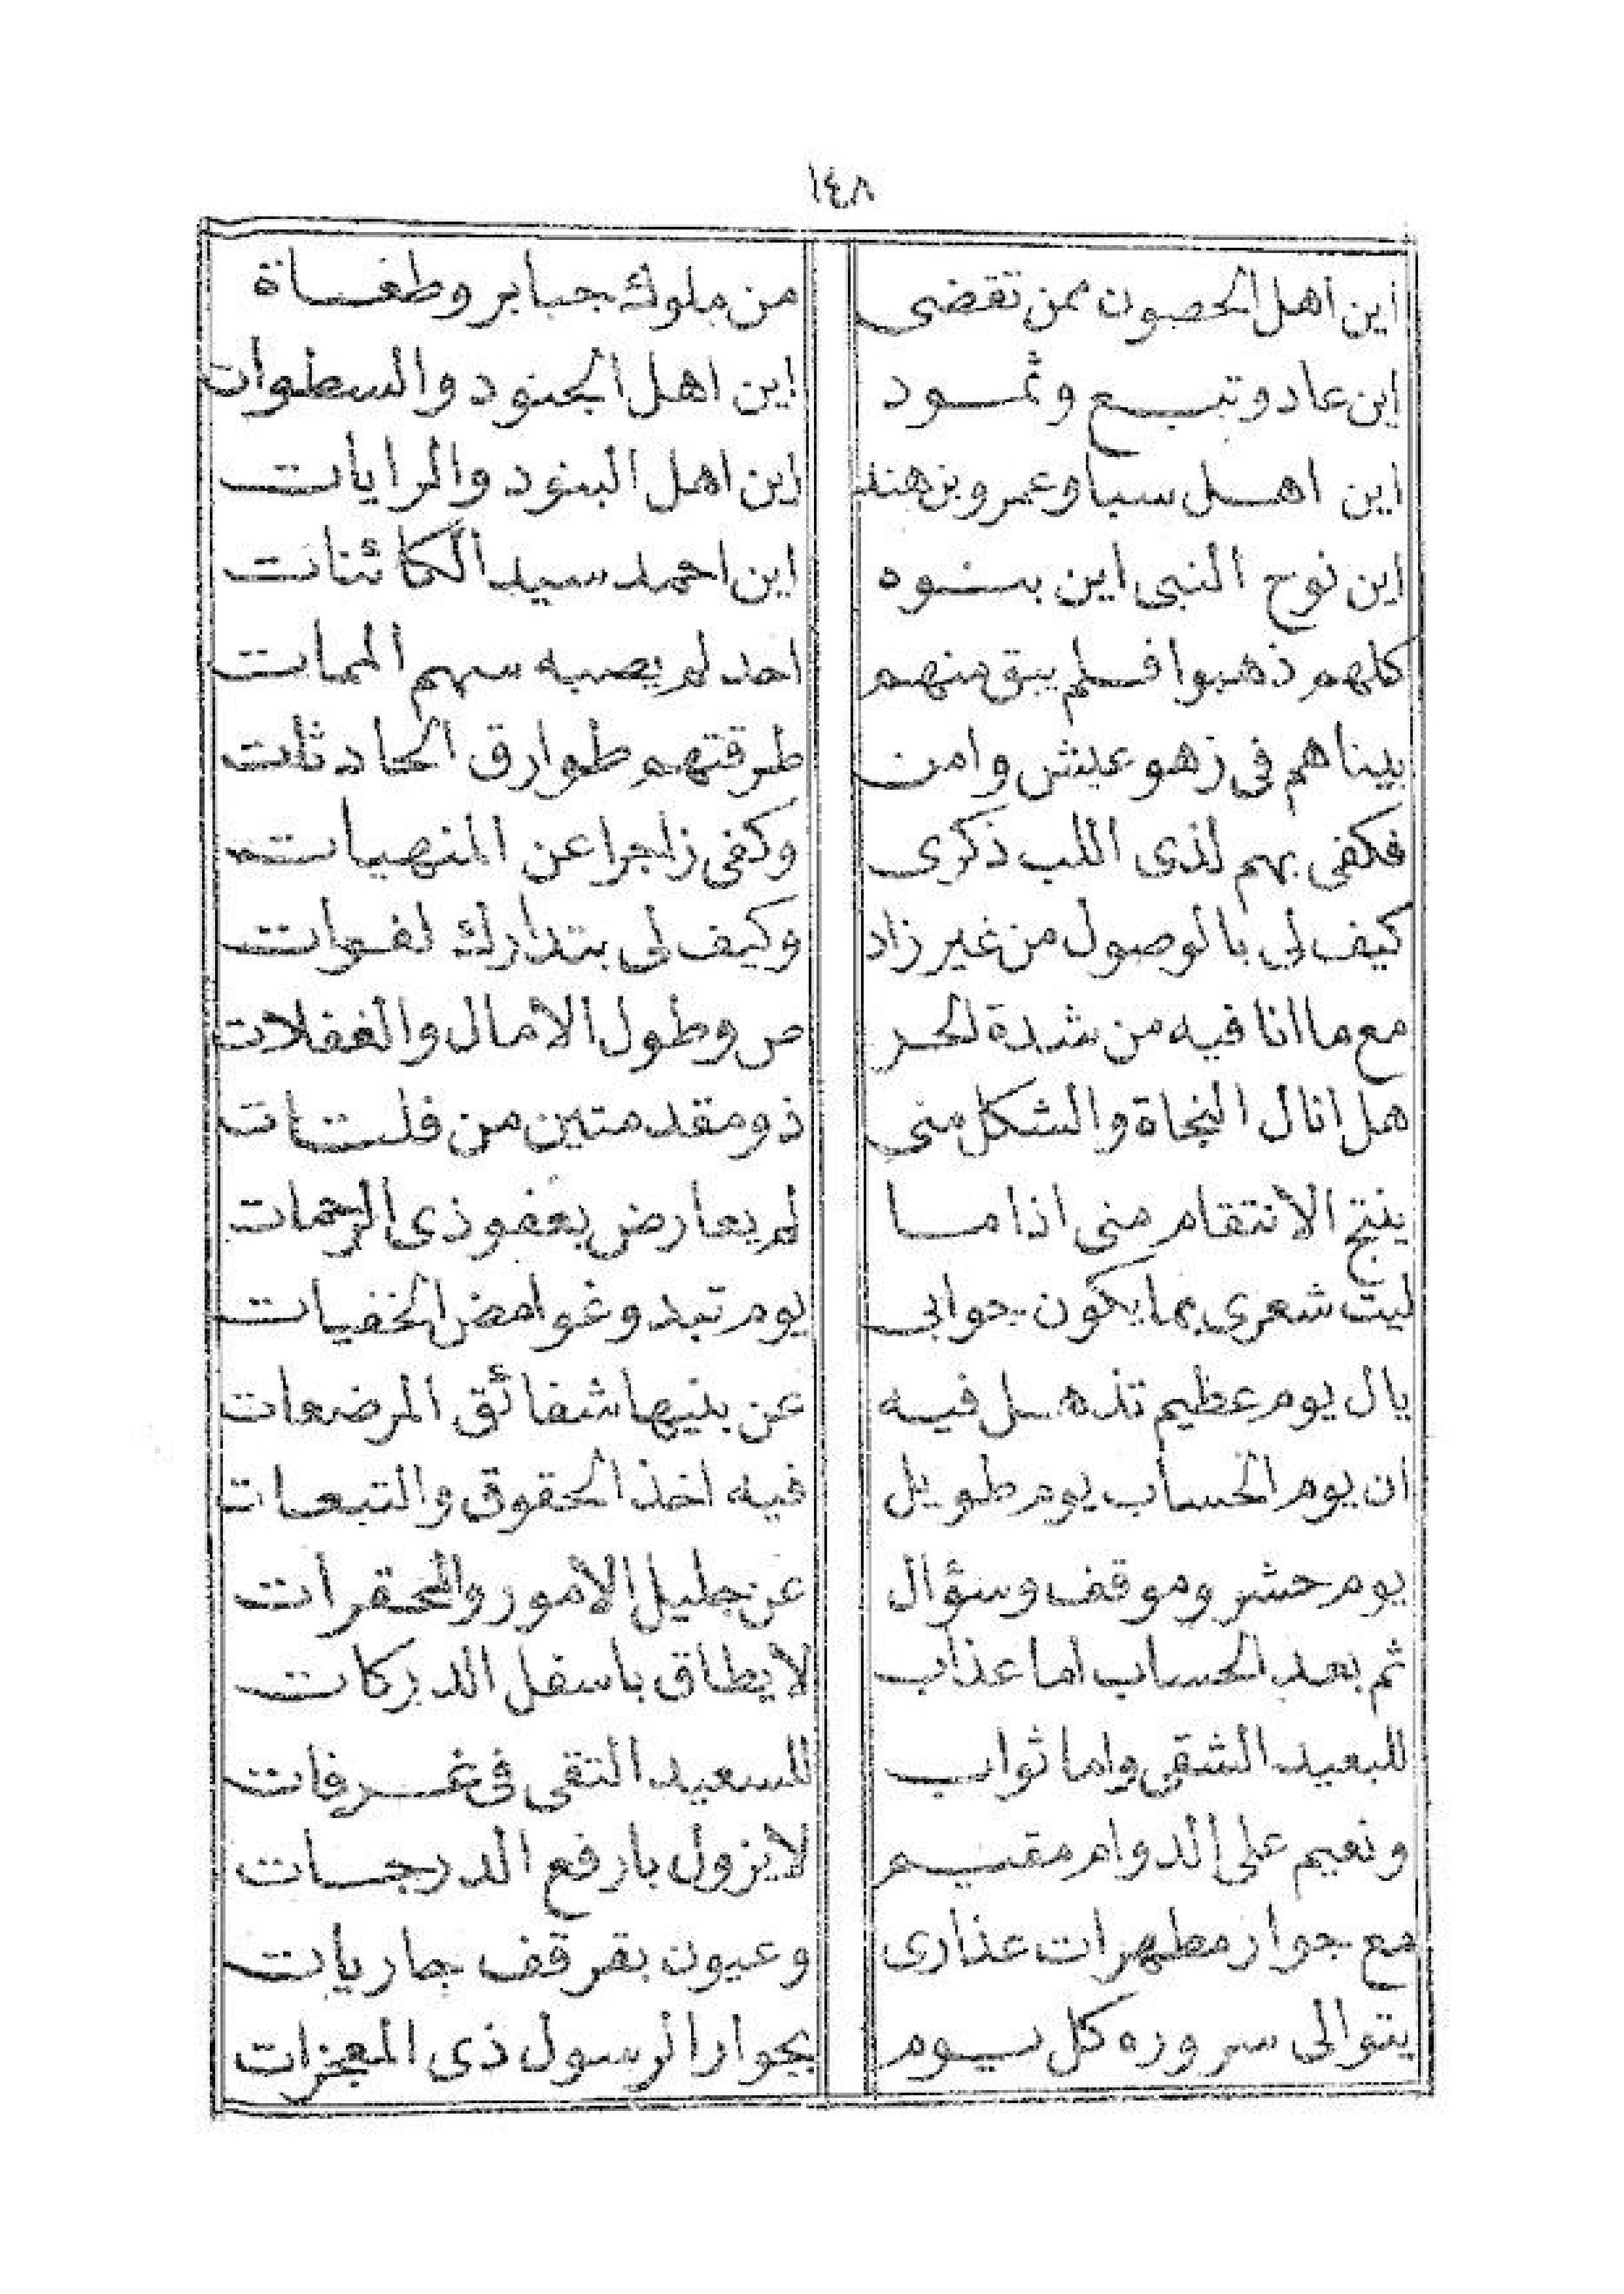 ١٤٨
اين اهل الحصون ممن تقضى من ملوك جبابر وطغاة
اين عاد وتبع وثمود اين اهل الجنود والسطوات
اين اهل سبا وعمرو بن هند اين اهل البنود والرايات
اين نوح النبى اين بنوه اين احمد سيد الكائنات
كلهم ذهبوا فلم يبق منهم احد لم يصبه سهم الممات
بيناهم فى زهو عيش وامن طرقتهم طوارق الحادثات
فكفى بهم لذى اللب ذكرى وكفى زاجرا عن المنهيات
كيف لى بالوصول من غير زاد وكيف لى بتدارك لفوات
مع ما انا فيه من شدة الحر ص وطول الامال والغفلات
هل انال النجاة والشكل منى ذو مقدمتين من فلتات
ينتج الانتقام منى اذا ما لم يعارض بعفو ذى الرحمات
ليت شعرى بما يكون جوابى يوم تبدو غوامض الخفيات
يال يوم عظيم تذهل فيه عن بنيها شفائق المرضعات
ان يوم الحساب يوم طويل فيه اخذ الحقوق والتبعات
يوم حشر وموقف وسؤال عن جليل الامور والمحقرات
ثم بعد الحساب اما عذاب لا يطاق باسفل الدركات
للبعيد الشقى واما ثواب للسعيد التقى فى غرفات
ونعيم على الدوام مقيم لا يزول بارفع الدرجات
مع جوار مطهرات عذارى وعيون بقرقف جاريات
يتوالى سروره كل يوم بجوار الرسول ذى المعجزات